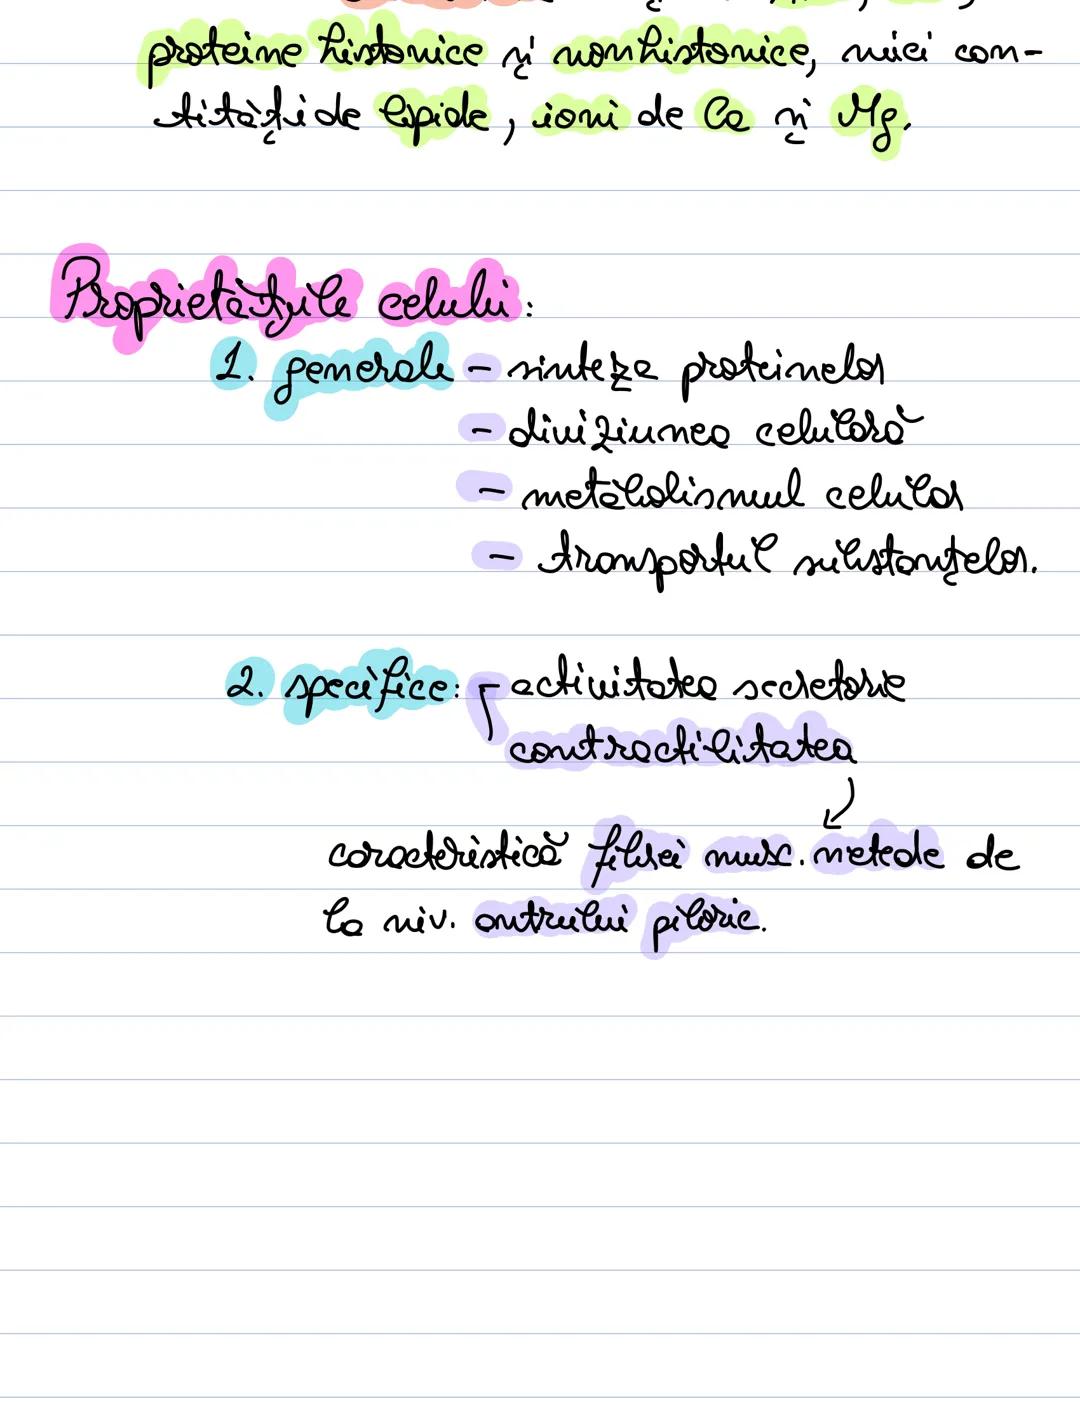 proteine histonice și nonhistonice, mici can-
tități de lipide, ioni de Ca și Mg.
Proprietățile celulei:
1. generale - sinteza proteinelor
- diviziunea celulară
- metabolismul celular
- transportul substanțelor.
2. specifice: - activitatea secretorie
contractilitatea
caracteristică fibrei musc. netede de
la niv. antrului piloric.